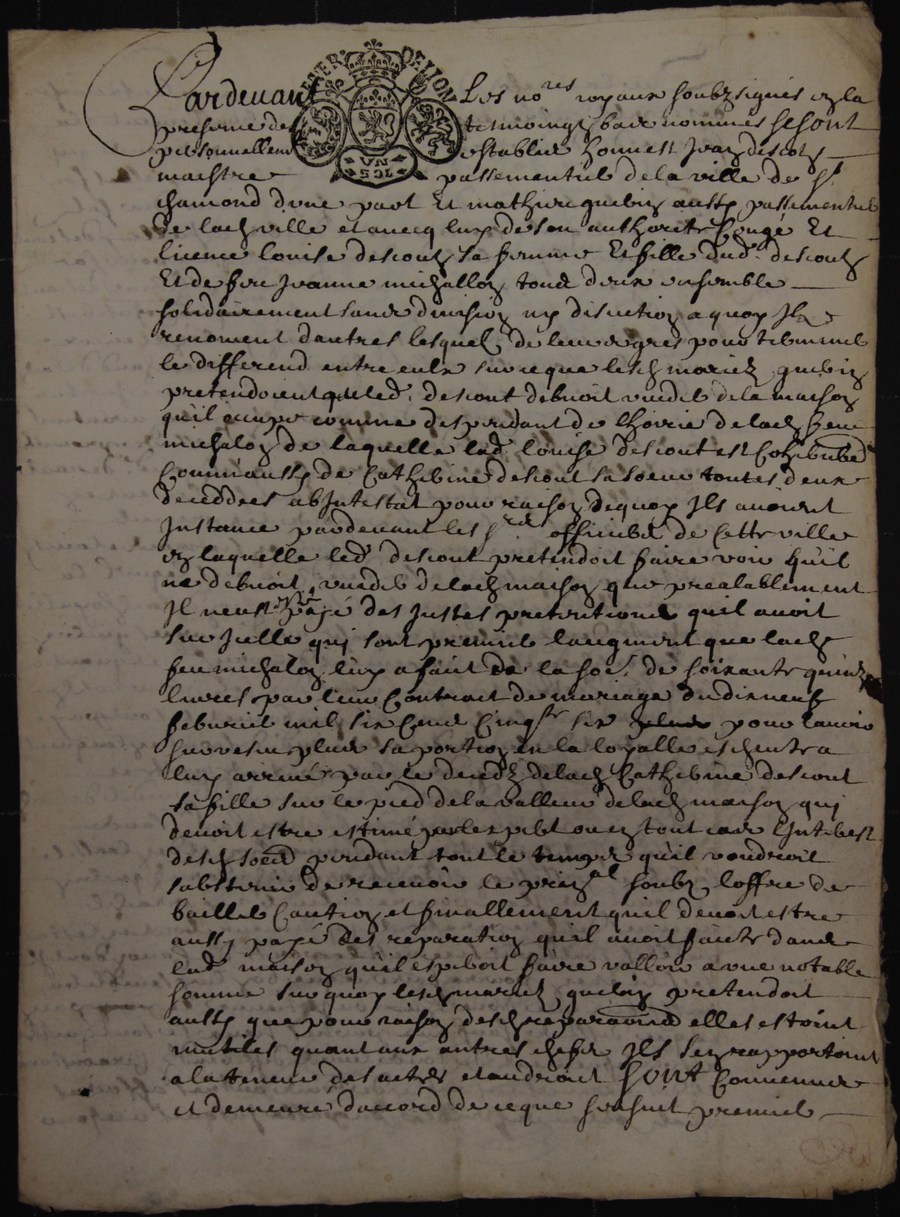 Pardevant Les no.res royaux soubzsignés et en la
GENER. DE LION
UN SOL
presence des tesmoingz bas nommés se sont
personnellem establis honnest Jean descotz
maistre passementier de la ville de St
chamond d'une part Et mathieu guebin aussy passementier
de lad ville et avecq luy de son authorité congé Et
licence louise descoutz sa femme Et fille dud. descoutz
Et de feue Jeanne michallon tous deux ensemble
solidairement sans division ny discution a quoy Ilz
renoncent d'autres lesquelz de leurs grés pour terminer
le differend entre eulx sur ce que lesd mariez guebin
pretendoient que led. descout debvoit vuider de la maison
qu'il occupe comme despendant de l'hoirie de lad feue
michalon de laquelle lad louise descout est cohéritiere
comm aussy de Catherine descout sa soeur toutes deux
decedées abintestat pour raison de quoy Ils avoient
Instance pardevant les srs officiers de Cette ville
en laquelle led descout pretendoit faire voir qu'il
ne debvoit vuider de lad maison que prealablement
Il neust esté payé des Justes pretentions qu'il avoit
sur Icelle qui sont premier l'augment que lad
feu michalon luy a faict de la som. de soixante quinze
livres par leur Contract de mariage du dixneuf
febvrier mil six Cent Cinqte six pour l'avoir
survescu plus sa portion en la loyalle escheute a
luy arrivé par le deceds de lad Catherine descout
sa fille sur le pied de la valleur de lad maison qui
devoit estre estimé par expert ou en tout cas l'Interest
desd sommes pendant tout le temps qu'il voudroit
s'abstenir de recevoir le prin.al soubz l'offre de
bailler Caution et finallement qu'il devoit estre
aussy payé des reparation qu'il avoit faicte dans
lad maison qu'il esperoit faire valloir a une notable
somme sur quoy lesd mariez guebin pretendoit
aussy que pour raison desd reparations elles estoint
inutiles quant aux autres chefs Ils se rapportoint
a la teneur des actes et au droit sont Convenus
et demeuré d'accord de ce que s'ensuit premier